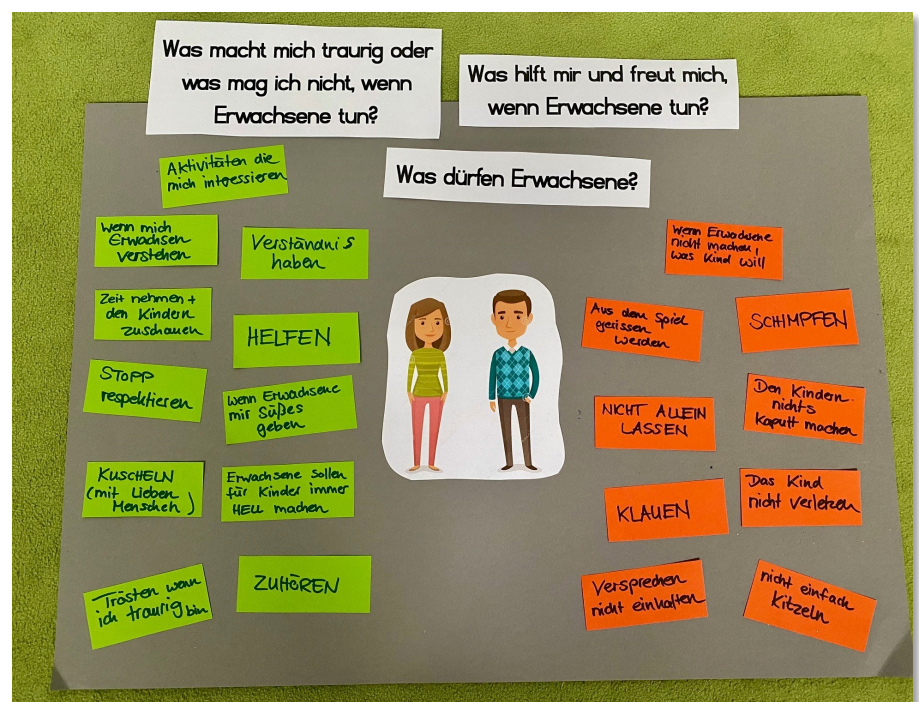 Was macht mich traurig oder
was mag ich nicht, wenn
Erwachsene tun?
Was hilft mir und freut mich,
wenn Erwachsene tun?
Was dürfen Erwachsene?
Aktivitäten die
mich intressieren
Wenn mich
Erwachsen
verstehen
Verständnis
haben
Zeit nehmen +
den Kindern
zuschauen
HELFEN
STOPP
respektieren
wenn Erwachsene
mir Süßes
geben
KUSCHELN
(mit Lieben
Menschen)
Erwachsene sollen
für Kinder immer
HELL machen
Trösten wenn
ich traurig bin
ZUHÖREN
Wenn Erwachsene
nicht machen,
was Kind will
Aus dem Spiel
gerissen
werden
SCHIMPFEN
NICHT ALLEIN
LASSEN
Den Kindern
nichts
kaputt machen
KLAUEN
Das Kind
nicht verletzen
Versprechen
nicht einhalten
nicht einfach
Kitzeln